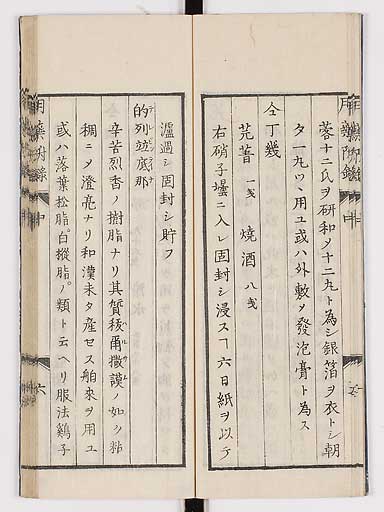 蓉十二氏ヲ研和〆十二丸ト為シ銀箔ヲ衣トシ朝
夕一丸ツヽ用ユ或ハ外敷〆發泡膏ト為ス
仝丁幾
芫菁 一戔 燒酒 八戔
右硝子壜ニ入レ固封シ浸スヿ六日紙ヲ以テ
瀘過シ固封シ貯フ
的列並底那
辛苦烈香ノ樹脂ナリ其質稜甬撒謨ノ如ク粘
稠ニ〆澄亮ナリ和漢未タ産セス舶來ヲ用ユ
或ハ落葉松脂白樅脂ノ類ト云ヘリ服法鷄子
六